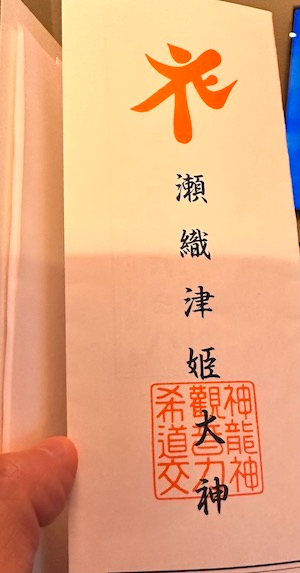 瀬織津姫大神
神龍神
觀音力
希道交